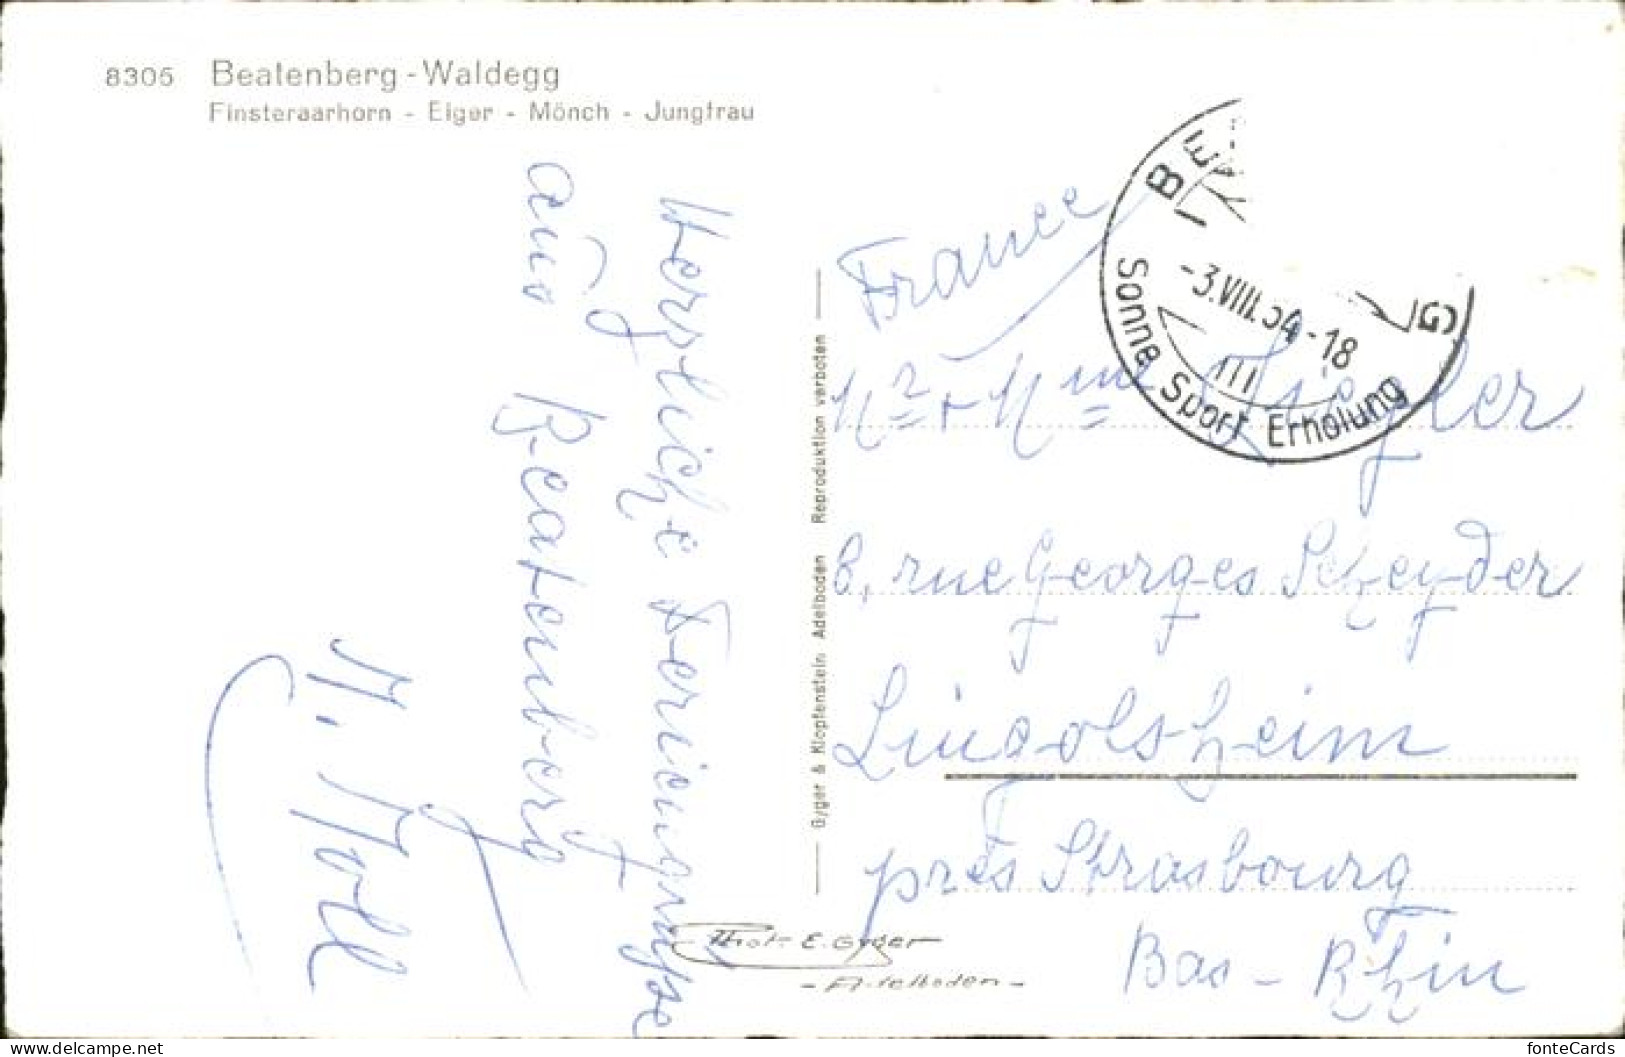 8305 Beatenberg - Waldegg
Finsteraarhorn - Eiger - Mönch - Jungfrau
Herzliche Feriengrüsse
aus Beatenberg
M. Moll
Gyger & Klopfenstein Adelboden Reproduktion verboten
Phot. E. Gyger
- Adelboden -
BE G
-3.VIII.54-18
Sonne Sport Erholung
France
Mr + Mme Ziegler
8, rue Georges
Lingolsheim
près Strasbourg
Bas-Rhin
fonteCards